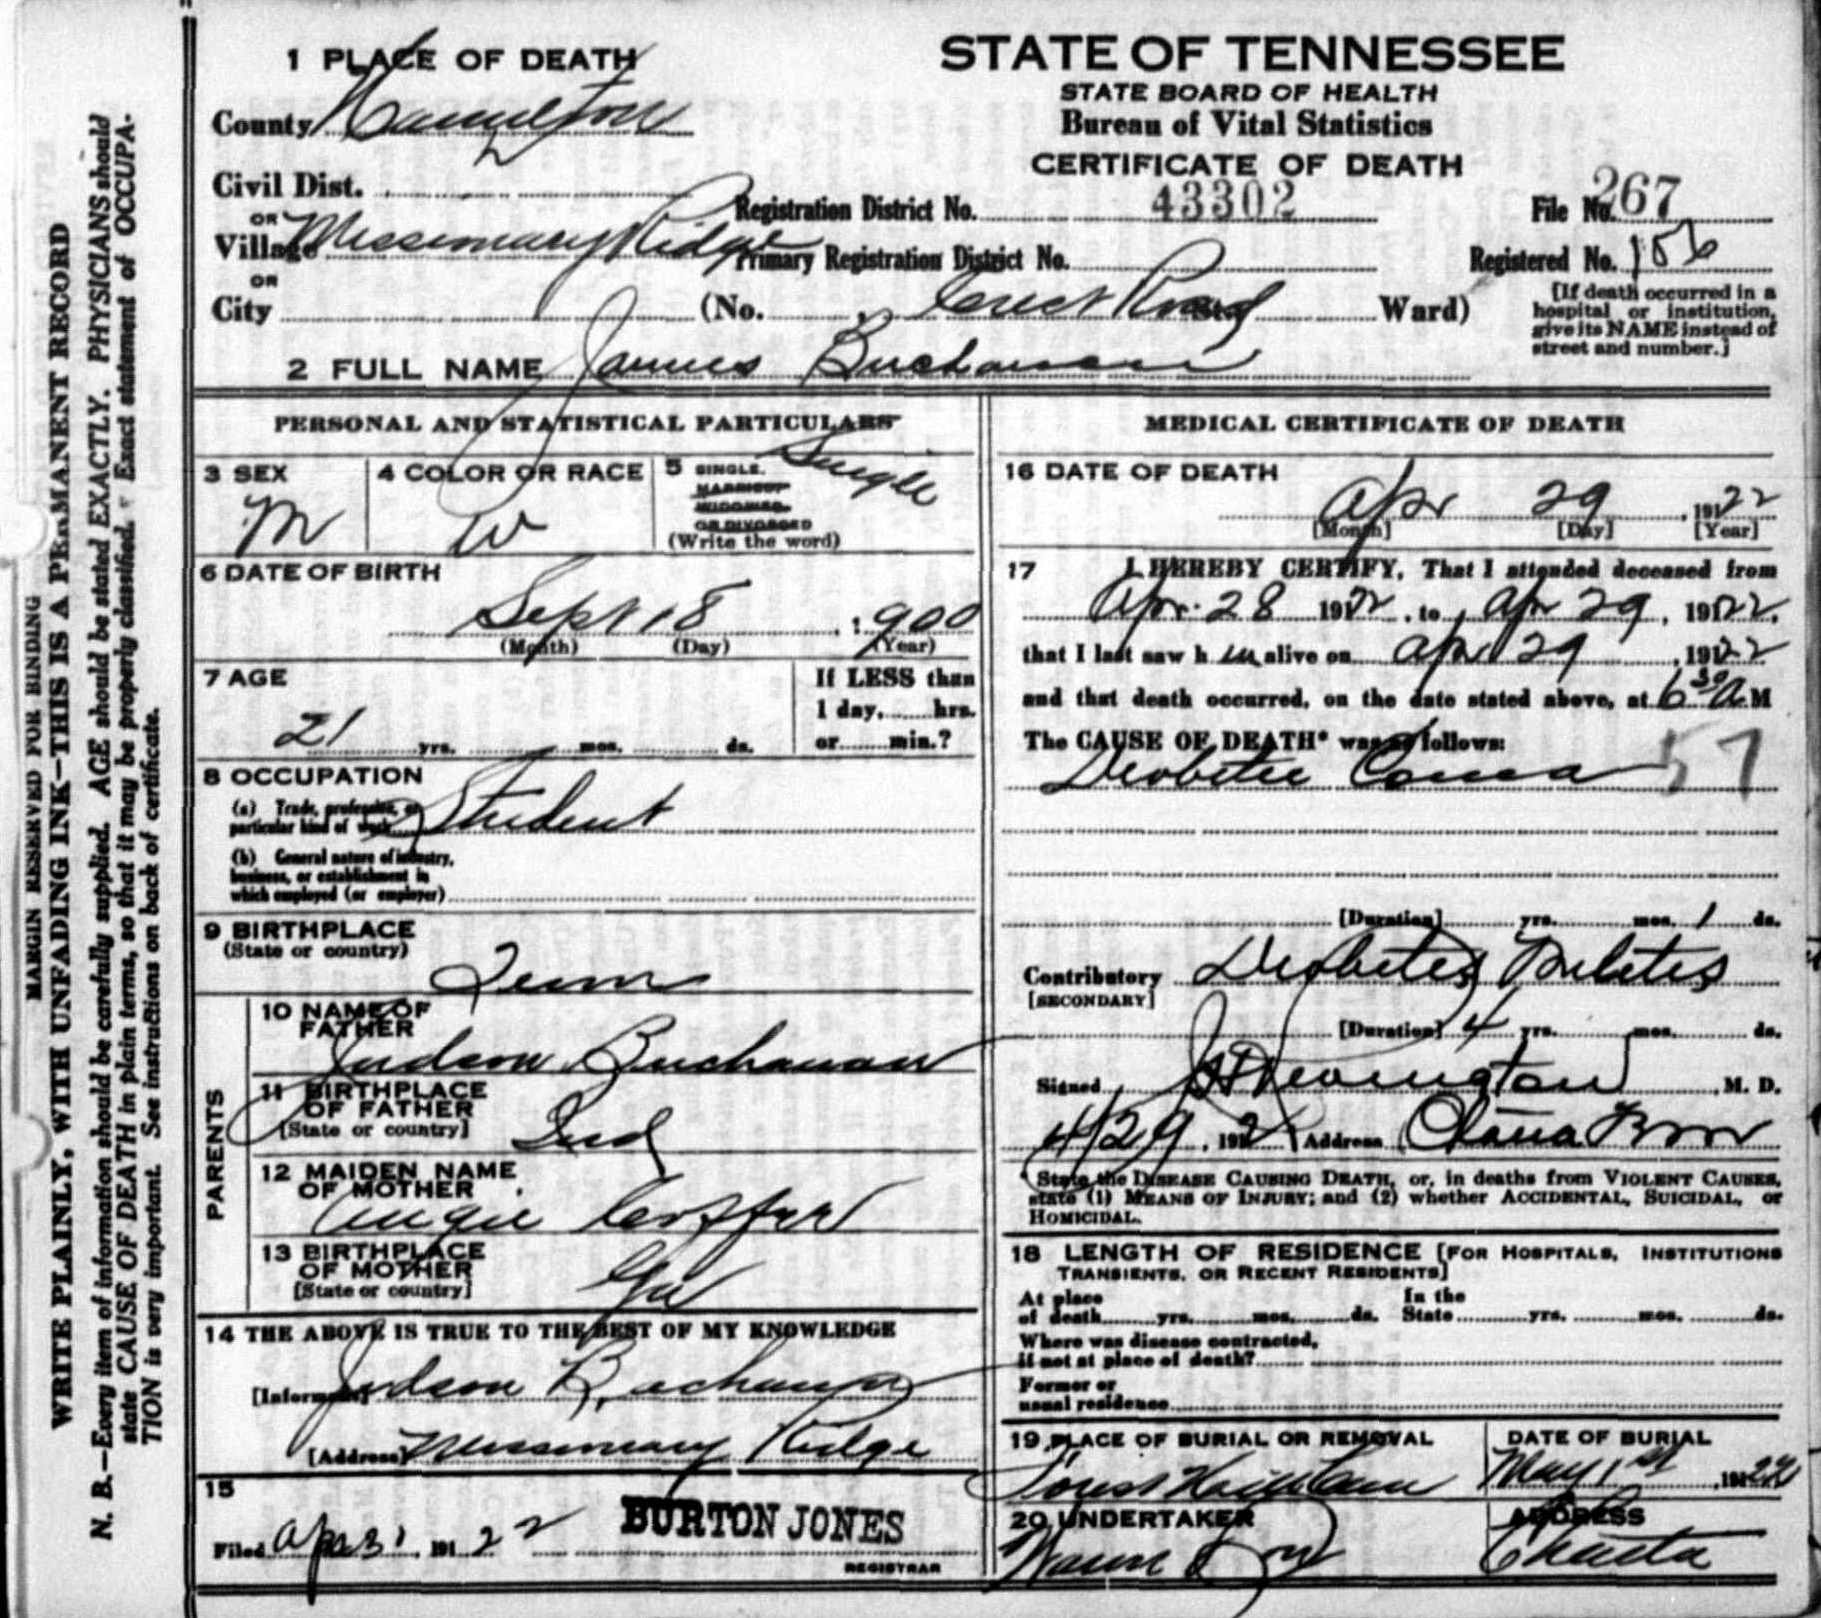 MARGIN RESERVED FOR BINDING
WRITE PLAINLY, WITH UNFADING INK—THIS IS A PERMANENT RECORD
N. B.—Every item of information should be carefully supplied. AGE should be stated EXACTLY. PHYSICIANS should
state CAUSE OF DEATH in plain terms, so that it may be properly classified. Exact statement of OCCUPA-
TION is very important. See instructions on back of certificate.
1 PLACE OF DEATH
County Hamilton
Civil Dist.
OR
Village Missionary Ridge
OR
City (No. , Crest Road Ward)
STATE OF TENNESSEE
STATE BOARD OF HEALTH
Bureau of Vital Statistics
CERTIFICATE OF DEATH
Registration District No. 43302 File No. 267
Primary Registration District No. Registered No. 186
[If death occurred in a
hospital or institution,
give its NAME instead of
street and number.]
2 FULL NAME James Buchanan
PERSONAL AND STATISTICAL PARTICULARS
3 SEX
M
4 COLOR OR RACE
W
5 SINGLE, Single
MARRIED,
WIDOWED,
OR DIVORCED
(Write the word)
6 DATE OF BIRTH
Sept 18, 1900
(Month) (Day) (Year)
7 AGE
21 yrs. mos. ds.
If LESS than
1 day, hrs.
or min.?
8 OCCUPATION
(a) Trade, profession, or
particular kind of work Student
(b) General nature of industry,
business, or establishment in
which employed (or employer)
9 BIRTHPLACE
(State or country)
Tenn
PARENTS
10 NAME OF
FATHER
Judson Buchanan
11 BIRTHPLACE
OF FATHER
[State or country] Ind
12 MAIDEN NAME
OF MOTHER
Angie
13 BIRTHPLACE
OF MOTHER
[State or country] Ga
14 THE ABOVE IS TRUE TO THE BEST OF MY KNOWLEDGE
[Informant] Judson Buchanan
[Address] Missionary Ridge
15
Filed Apr 31, 1922 BURTON JONES
REGISTRAR
MEDICAL CERTIFICATE OF DEATH
16 DATE OF DEATH
Apr 29, 1922
[Month] [Day] [Year]
17 I HEREBY CERTIFY, That I attended deceased from
Apr. 28 1922, to Apr 29, 1922,
that I last saw h im alive on Apr 29, 1922
and that death occurred, on the date stated above, at 6 30 a M
The CAUSE OF DEATH* was as follows:
Diabetic Coma 57
[Duration] yrs. mos. 1 ds.
Contributory Diabetes Melitis
[SECONDARY]
[Duration] 4 yrs. mos. ds.
Signed , M. D.
4/29, 192 Address
*State the DISEASE CAUSING DEATH, or, in deaths from VIOLENT CAUSES,
state (1) MEANS OF INJURY; and (2) whether ACCIDENTAL, SUICIDAL, or
HOMICIDAL.
18 LENGTH OF RESIDENCE [FOR HOSPITALS, INSTITUTIONS
TRANSIENTS, OR RECENT RESIDENTS]
At place In the
of death yrs. mos. ds. State yrs. mos. ds.
Where was disease contracted,
if not at place of death?
Former or
usual residence
19 PLACE OF BURIAL OR REMOVAL
Forest Hill Cem
DATE OF BURIAL
May 1st, 1922
20 UNDERTAKER
ADDRESS
Chatta